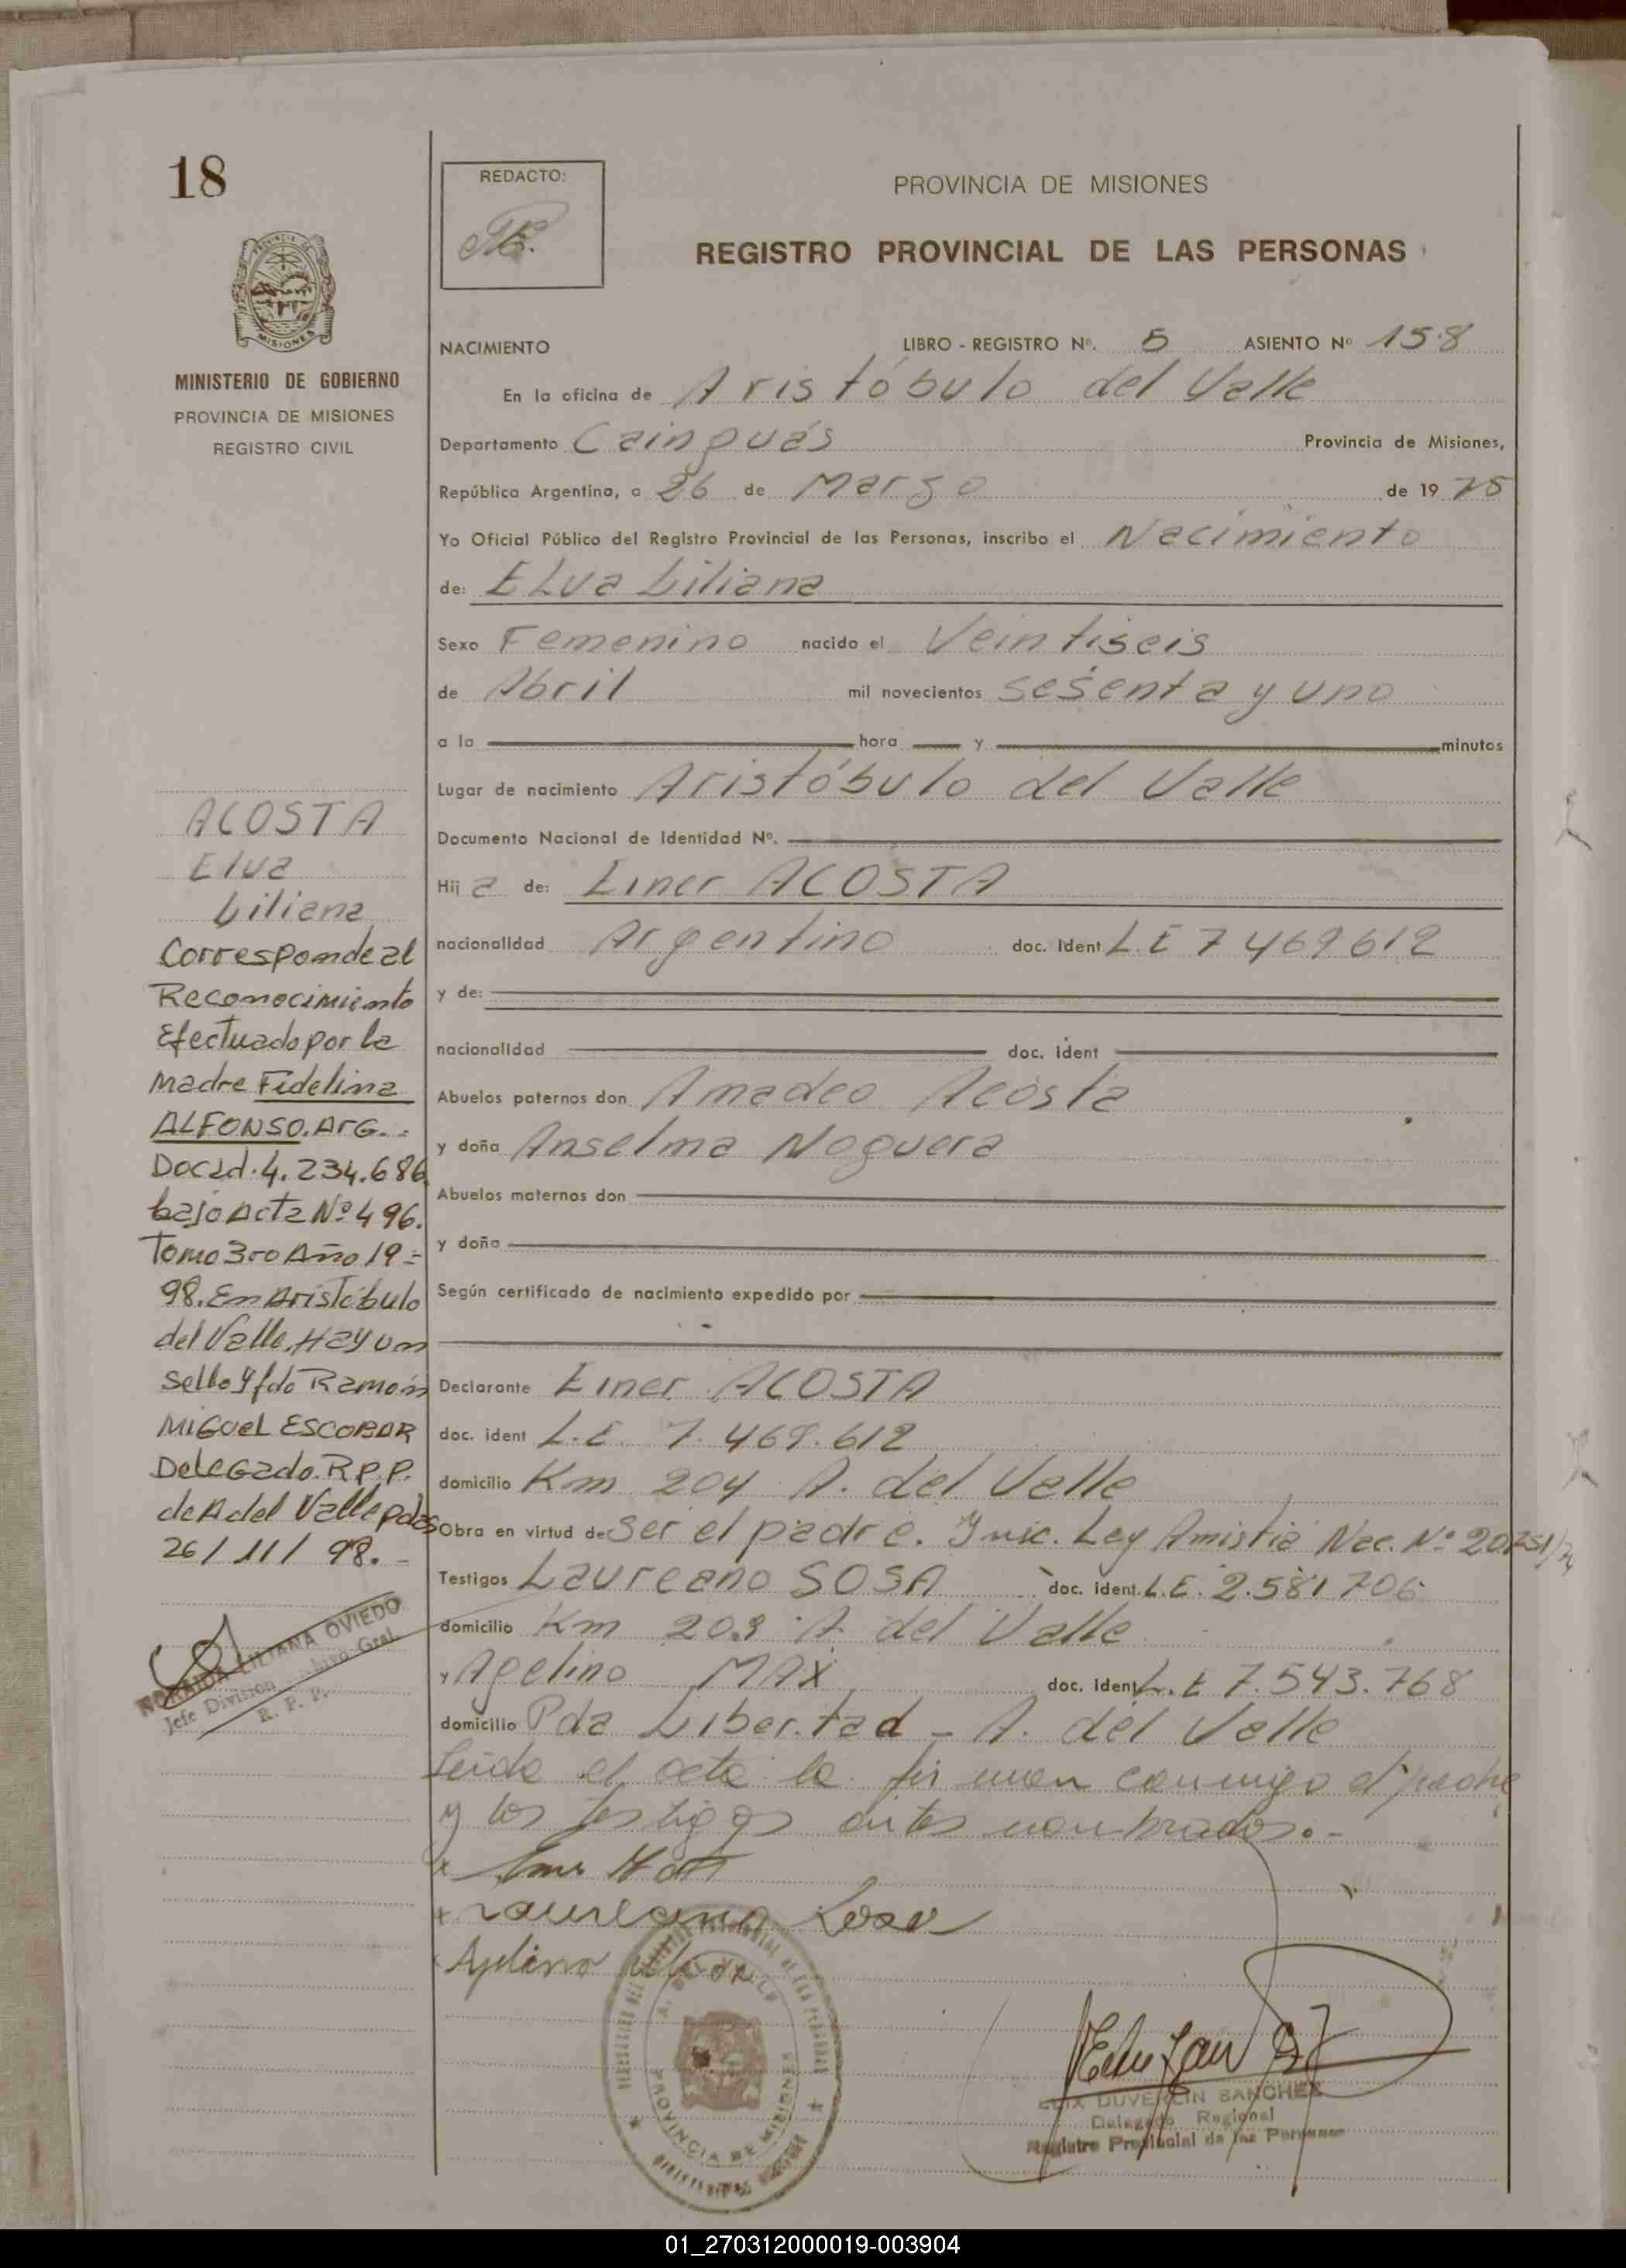 18
REDACTO:
PROVINCIA DE MISIONES
REGISTRO PROVINCIAL DE LAS PERSONAS
MISIONES
MINISTERIO DE GOBIERNO
PROVINCIA DE MISIONES
REGISTRO CIVIL
ACOSTA
Elva
Liliana
Corresponde al
Reconocimiento
Efectuado por la
Madre Fidelina
ALFONSO. Arg. =
Doc Id. 4.234.686
bajo Acta Nº 496.
Tomo 3ro Año 19=
98. En Aristóbulo
del Valle. Hay un
sello y fdo Ramón
MIGUEL ESCOBAR
Delegado. R.P.P.
de A del Valle pdas
26/11/98.-
NORAIDA LILIANA OVIEDO
Jefe Division Gral
R. P. P.
NACIMIENTO LIBRO - REGISTRO Nº. 5 ASIENTO Nº 158
En la oficina de Aristóbulo del Valle
Departamento Cainguás Provincia de Misiones,
República Argentina, a 26 de Marzo de 1975
Yo Oficial Público del Registro Provincial de las Personas, inscribo el Nacimiento
de: Elva Liliana
Sexo Femenino nacido el Veintiseis
de Abril mil novecientos sesenta y uno
a la hora y minutos
Lugar de nacimiento Aristóbulo del Valle
Documento Nacional de Identidad Nº.
Hija de: Einer ACOSTA
nacionalidad Argentino doc. ident L.E 7469612
y de:
nacionalidad doc. ident
Abuelos paternos don Amadeo Acosta
y doña Anselma Noguera
Abuelos maternos don
y doña
Según certificado de nacimiento expedido por
Declarante Einer ACOSTA
doc. ident L.E. 7.469.612
domicilio Km 204 A. del Valle
Obra en virtud de ser el padre. Ley Amistia Nac. Nº 20751/74
Testigos Laureano SOSA doc. ident. L.E. 2.581706
domicilio Km 203 A. del Valle
y Agelino MAX doc. ident L.E 7.543.768
domicilio Pda Libertad - A. del Valle
Leida el acta la firman conmigo el padre
y los testigos antes nombrados.-
Laureano Sosa
PROVINCIA DE MISIONES
DUVERLIN SANCHEZ
Delegado Regional
Registro Provincial de las Personas
01_270312000019-003904